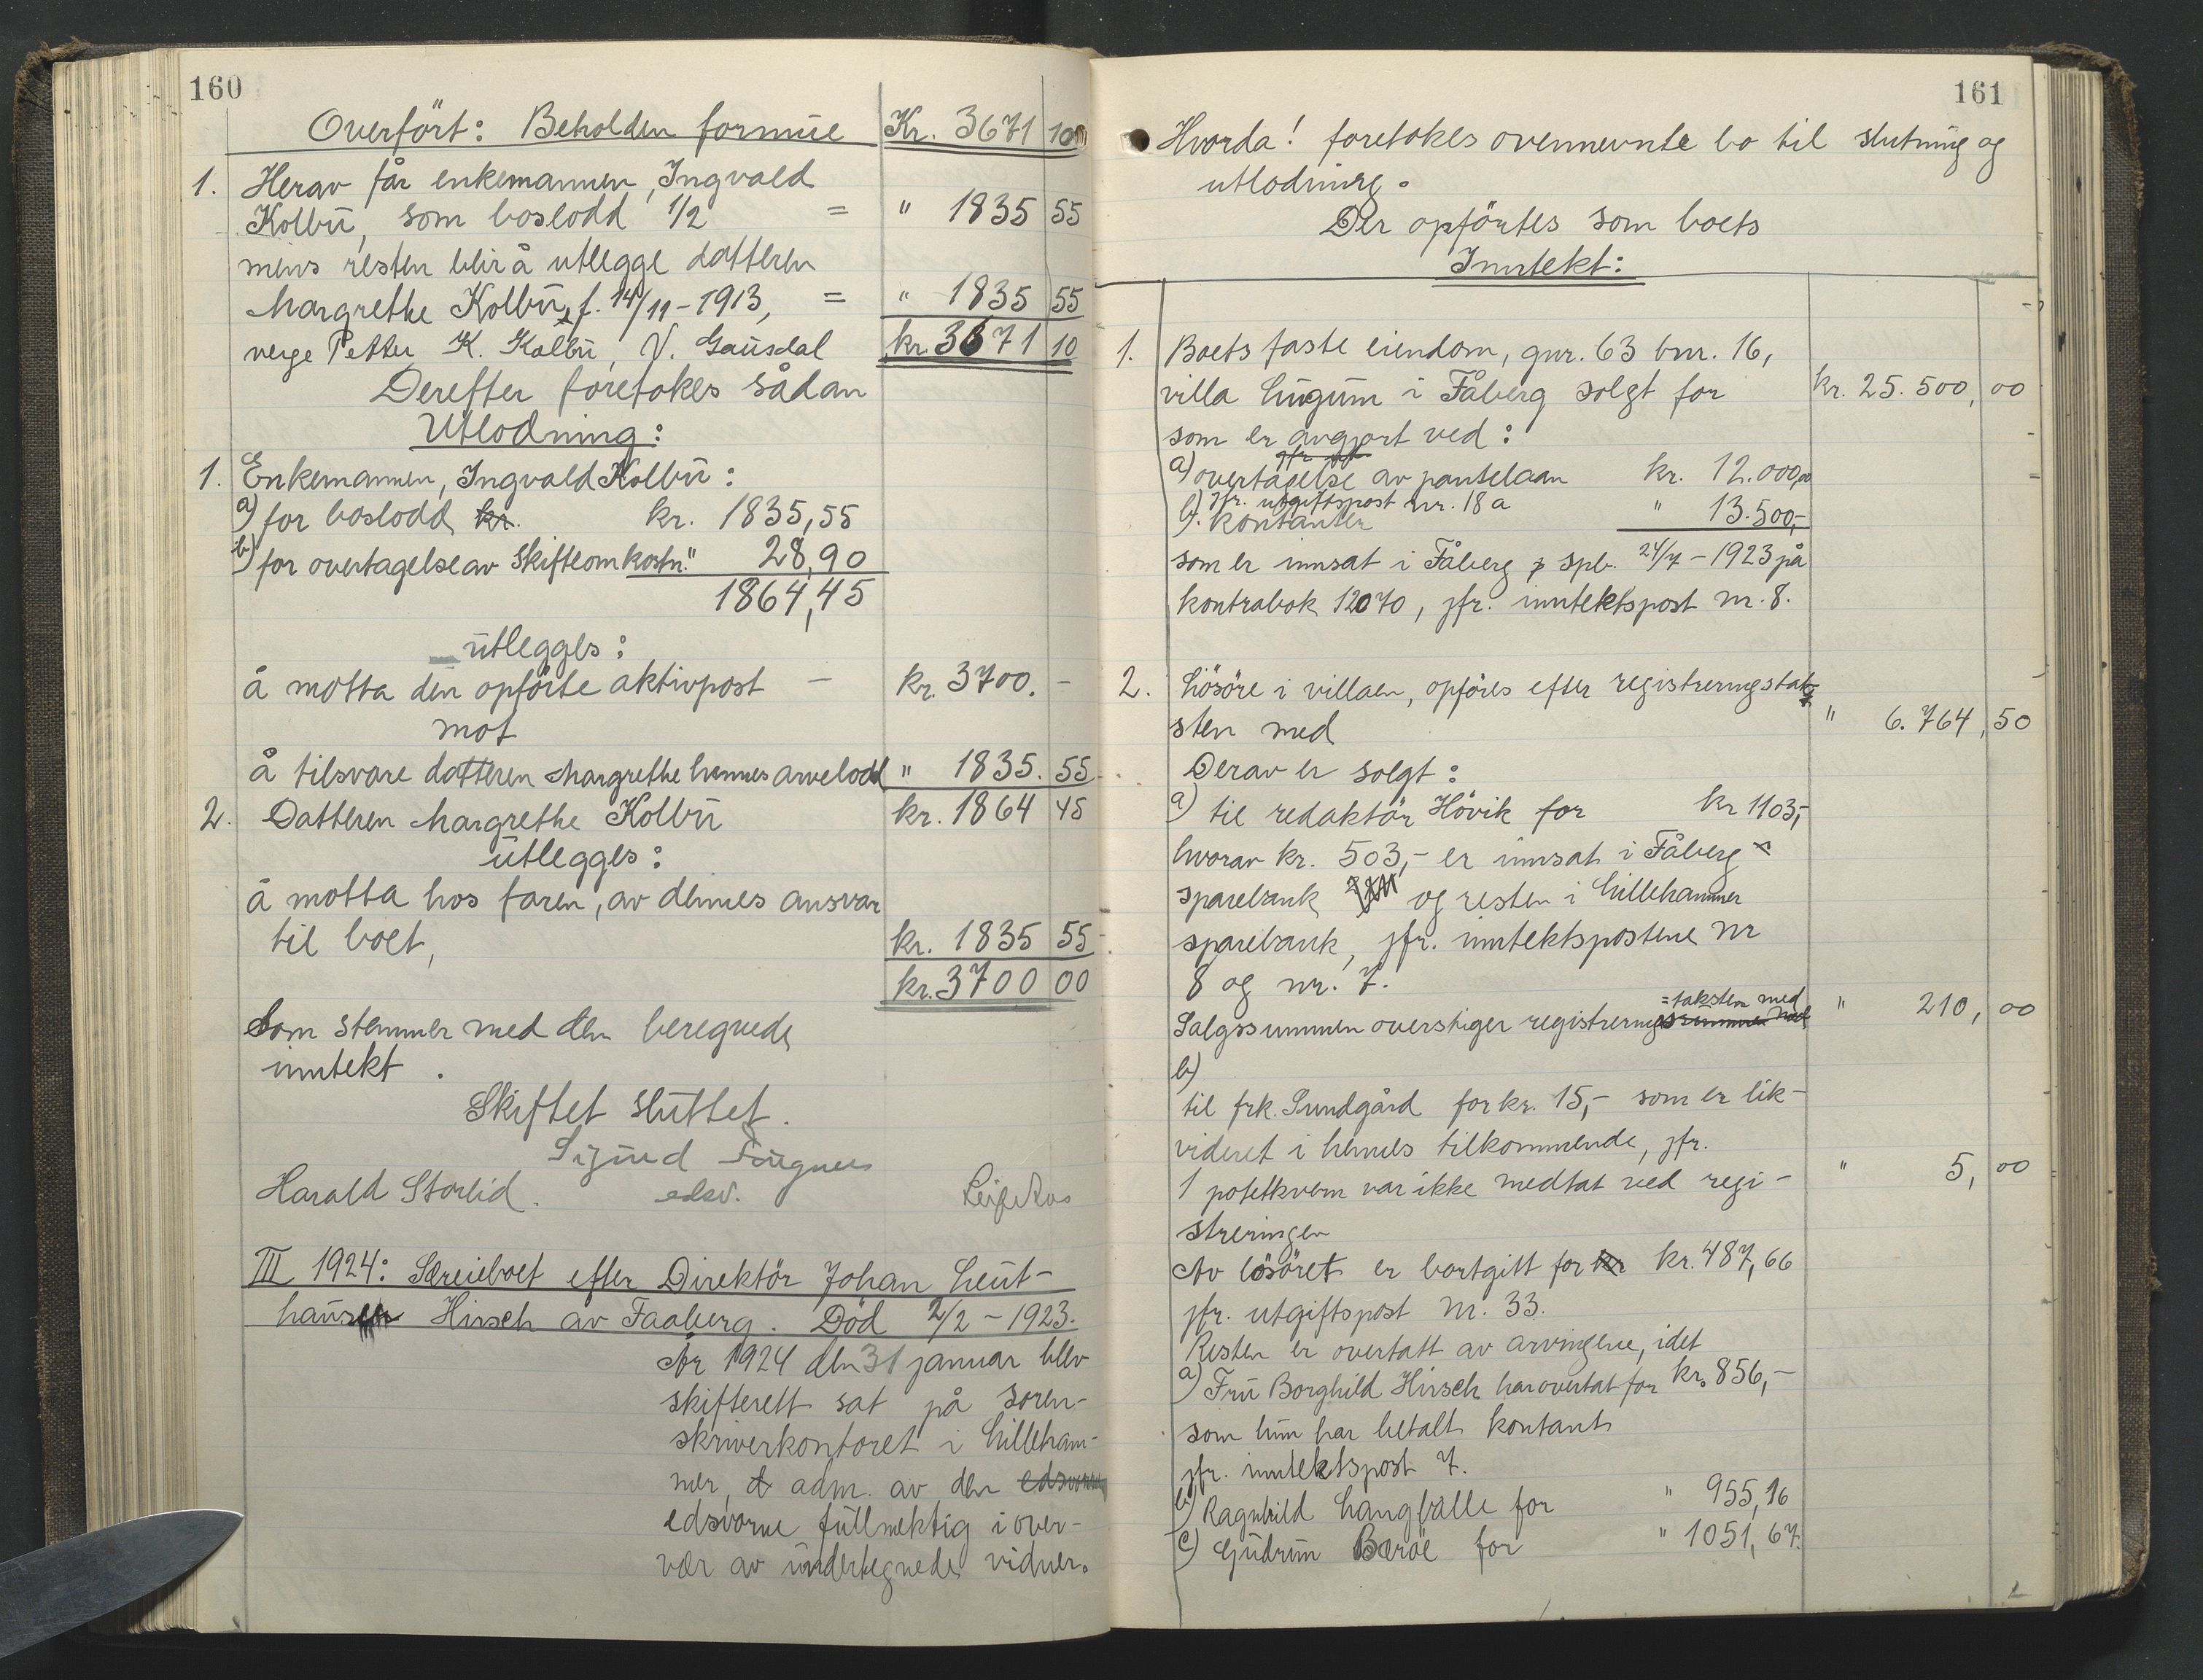 160
Overført: Beholden formue Kr. 3671 10
1. Herav får enkemannen, Ingvald
Kolbu, som boslodd 1/2 = " 1835 55
mens resten blir å utlegge datteren
Margrethe Kolbu, f. 14/11-1913, = " 1835 55
verge Petter K. Kolbu, V. Gausdal kr. 3671 10
Derefter foretokes sådan
Utlodning:
1. Enkemannen, Ingvald Kolbu:
a) for boslodd kr. kr. 1835,55
b) for overtagelse av skifteomkostn. " 28,90
1864,45
utlegges:
å motta den opførte aktivpost – kr. 3700. –
mot
å tilsvare datteren Margrethe hennes arvelodd " 1835. 55
kr. 1864 45
2. Datteren Margrethe Kolbu
utlegges:
å motta hos faren, av dennes ansvar
til boet, kr. 1835 55
kr. 3700 00
Som stemmer med den beregnede
inntekt.
Skiftet sluttet.
Sigurd Fougner
edsv.
Harald Storlid. Leif Aas
III 1924: Særeieboet efter Direktør Johan Leut-
hauser Hirsch av Faaberg. Død 2/2-1923.
År 1924 den 31 januar blev
skifterett sat på soren-
skriverkontoret i Lilleham-
mer, adm. av den edsvorne
edsvorne fullmektig i over-
vær av undertegnede vidner.
161
Hvorda! foretokes ovennevnte bo til slutning og
utlodning.
Der opførtes som boets
Inntekt:
1. Boets faste eiendom, gnr. 63 bnr. 16,
villa Lugum i Fåberg solgt for kr. 25.500,00
som er avgjort ved:
a) overtagelse av pantelaan kr. 12.000,00
jfr. utgiftspost nr. 18 a
b). kontanter " 13.500,-
som er innsat i Fåberg spb. 24/7-1923 på
kontrabok 12070, jfr. inntektspost nr. 8.
2. Løsøre i villaen, opføres efter registreringstak-
sten med " 6.764,50
Derav er solgt:
a) til redaktør Høvik for kr 1103,-
hvorav kr. 503,- er innsat i Fåberg
sparebank og resten i Lillehammer
sparebank, jfr. inntektspostene nr
8 og nr. 7.
=taksten med
Salgssummen overstiger registreringssummen med " 210,00
b)
til frk. Sundgård for kr. 15,- som er lik-
videret i hennes tilkommende, jfr.
1 potetkvern var ikke medtat ved regi- " 5,00
streringen
Av løsøret er bortgitt for kr kr. 487,66
jfr. utgiftspost nr. 33.
Resten er overtatt av arvingene, idet
a) Fru Borghild Hirsch har overtat for kr. 856,-
som hun har betalt kontant
jfr. inntektspost 7.
b) Ragnhild Langballe for " 955,16
c) Gudrun Bærøe for " 1051,67.